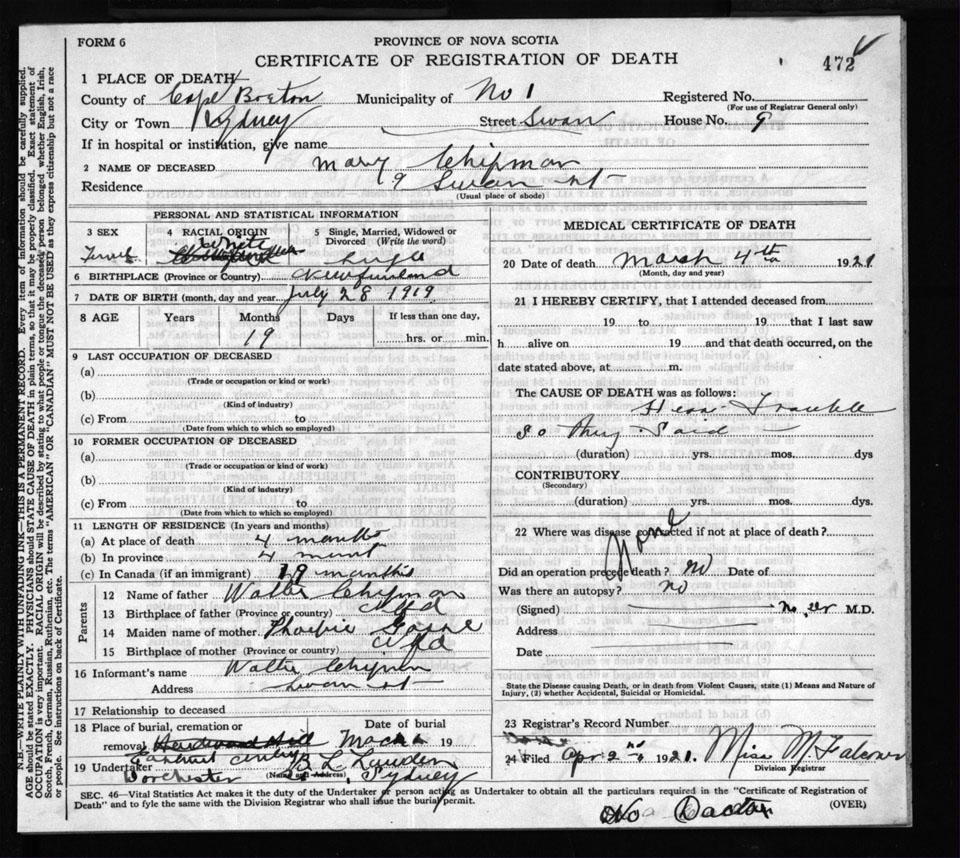 FORM 6
PROVINCE OF NOVA SCOTIA
CERTIFICATE OF REGISTRATION OF DEATH
472
1 PLACE OF DEATH
County of Cape Breton Municipality of No 1 Registered No.
(For use of Registrar General only)
City or Town Sydney Street Swan House No. 9
If in hospital or institution, give name
2 NAME OF DECEASED Mary Chipman
Residence 9 Swan st
(Usual place of abode)
PERSONAL AND STATISTICAL INFORMATION
3 SEX 4 RACIAL ORIGIN 5 Single, Married, Widowed or Divorced (Write the word)
White Single
6 BIRTHPLACE (Province or Country)
7 DATE OF BIRTH (month, day and year) July 28 1919
8 AGE Years Months Days If less than one day,
19 hrs. or min.
9 LAST OCCUPATION OF DECEASED
(a)
(Trade or occupation or kind or work)
(b)
(Kind of industry)
(c) From to
(Date from which to which so employed)
10 FORMER OCCUPATION OF DECEASED
(a)
(Trade or occupation or kind of work)
(b)
(Kind of industry)
(c) From to
(Date from which to which so employed)
11 LENGTH OF RESIDENCE (In years and months)
(a) At place of death 4 months
(b) In province 4
(c) In Canada (if an immigrant) 19 months
Parents
12 Name of father Walter Chipman
13 Birthplace of father (Province or country)
14 Maiden name of mother
15 Birthplace of mother (Province or country)
16 Informant's name Walter Chipman
Address Swan st
17 Relationship to deceased
18 Place of burial, cremation or removal Date of burial
19
19 Undertaker
(Name and Address) Sydney
Dorchester
MEDICAL CERTIFICATE OF DEATH
20 Date of death March 4th 1921
(Month, day and year)
21 I HEREBY CERTIFY, that I attended deceased from
19 to 19 that I last saw
h alive on 19 and that death occurred, on the
date stated above, at m.
The CAUSE OF DEATH was as follows:
So they Said
(duration) yrs. mos. dys
CONTRIBUTORY
(Secondary)
(duration) yrs. mos. dys.
22 Where was disease contracted if not at place of death?
None
Did an operation precede death? no Date of
Was there an autopsy? no
(Signed) no Dr M.D.
Address
Date
State the Disease causing Death, or in Death from Violent Causes, state (1) Means and Nature of
Injury, (2) whether Accidental, Suicidal or Homicidal.
23 Registrar's Record Number
24 Filed Apr 2nd 1921. Miss
Division Registrar
SEC. 46—Vital Statistics Act makes it the duty of the Undertaker or person acting as Undertaker to obtain all the particulars required in the "Certificate of Registration of
Death" and to fyle the same with the Division Registrar who shall issue the burial permit.
(OVER)
No Doctor
N.B.—WRITE PLAINLY WITH UNFADING INK—THIS IS A PERMANENT RECORD. Every item of information should be carefully supplied.
AGE should be stated EXACTLY. PHYSICIANS should STATE CAUSE OF DEATH in plain terms, so that it may be properly classified. Exact statement of
OCCUPATION is very important. RACIAL ORIGIN will be described by stating to what people or tongue the deceased person belonged whether English, Irish,
Scotch, French, German, Russian, Ruthenian, etc. The terms "AMERICAN" OR "CANADIAN" MUST NOT BE USED as they express citizenship but not a race
or people. See instructions on back of Certificate.